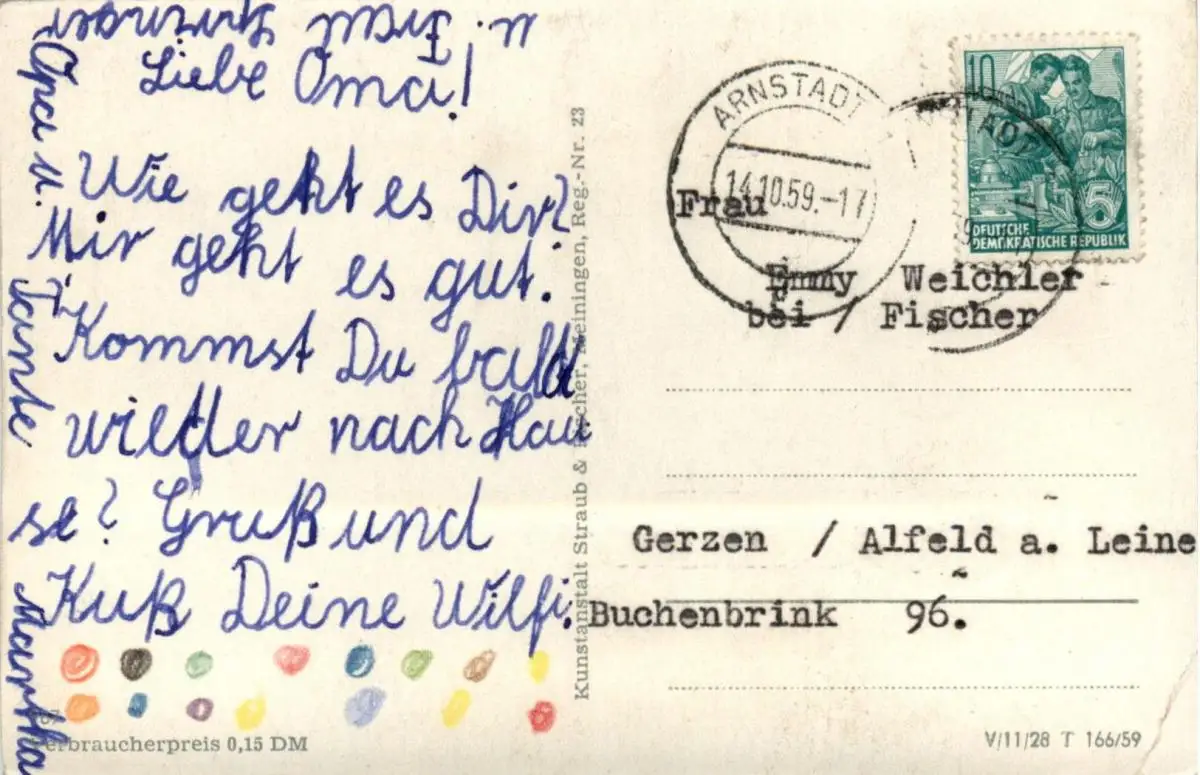 Liebe Oma!
Wie geht es Dir?
Mir geht es gut.
Kommst Du bald
wieder nach Hau
se? Gruß und
Kuß Deine Wilfi.
Opa u. Tante Martha
u. Frau
Verbraucherpreis 0,15 DM
Kunstanstalt Straub & Fischer, Meiningen, Reg.-Nr. 23
ARNSTADT
14.10.59.-17
10
5
DEUTSCHE
DEMOKRATISCHE REPUBLIK
Frau
Emmy Weichler
bei / Fischer
Gerzen / Alfeld a. Leine
Buchenbrink 96.
V/11/28 T 166/59